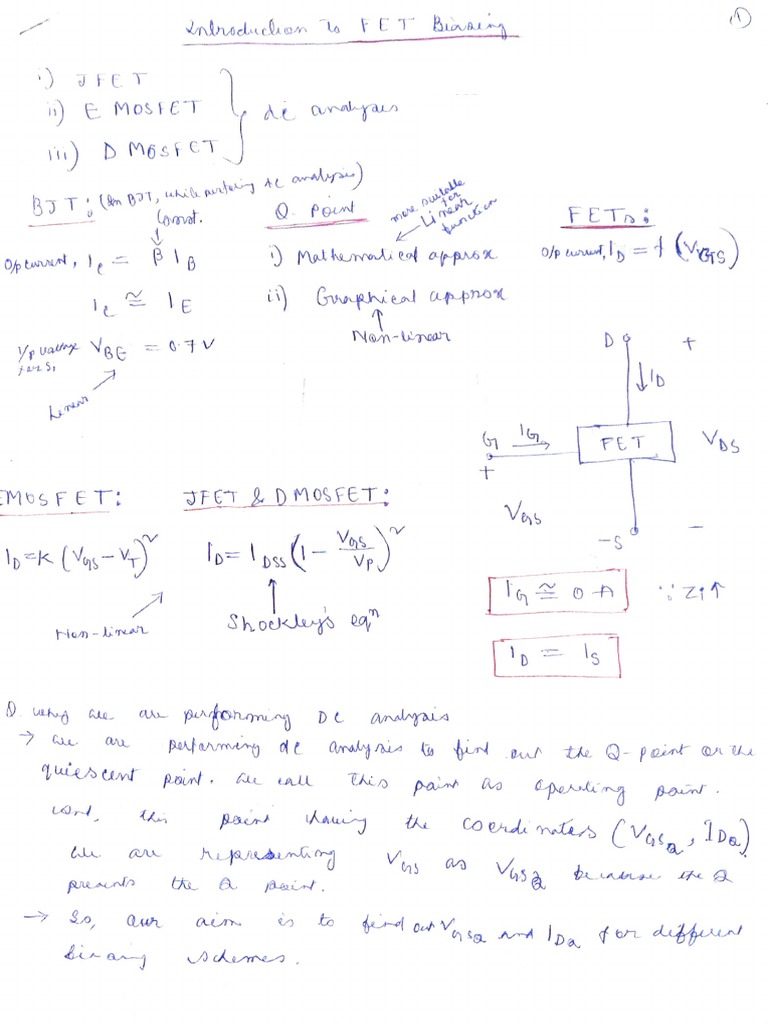 Introduction to FET Biasing
①
i) JFET
ii) E MOSFET
iii) D MOSFET
dc analysis
BJT: (In BJT, while performing AC analysis)
Const.
O/p current, Ic = β IB
Ic ≅ IE
I/p voltage VBE = 0.7 V
Linear
Q-Point
more suitable for Linear function
i) Mathematical approx
ii) Graphical approx
Non-linear
FETs:
O/p current, ID = f (VGS)
D
+
↓ ID
G IG →
+
FET
VDS
VGS
-S
-
EMOSFET:
ID = K (VGS - VT)²
Non-linear
JFET & DMOSFET:
ID = IDSS (1 - VGS/VP)²
Shockley's eqⁿ
IG ≅ 0 A ∵ Zi↑
ID = IS
Q. why we are performing DC analysis
→ we are performing dc analysis to find out the Q-point or the
quiescent point. we call this point as operating point.
this point having the coordinates (VGSQ, IDQ)
we are representing VGS as VGSQ because the Q
presents the Q point.
→ So, our aim is to find out VGSQ and IDQ for different
biasing schemes.